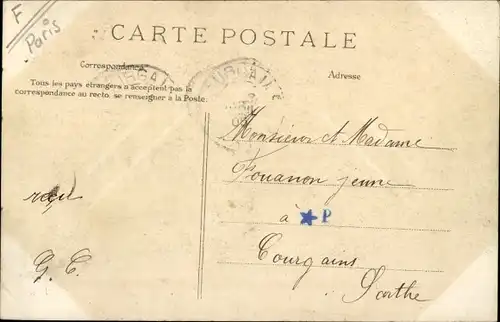 F
Paris
CARTE POSTALE
Correspondance
Tous les pays étrangers n'acceptent pas la
correspondance au recto, se renseigner à la Poste.
Adresse
Monsieur et Madame
Fouanon jeune
à ★ P
Courgains
Sarthe
G. C.